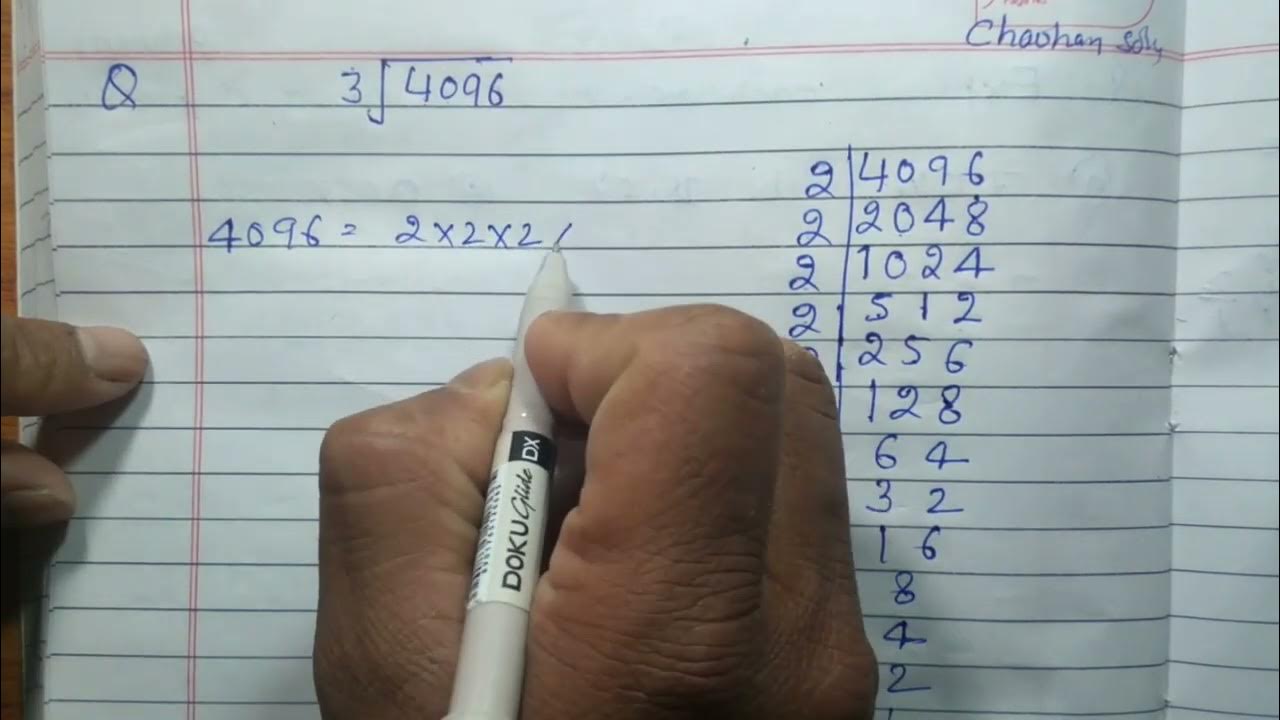 Chaohan Solu
Q 3√4096
2 | 4096
4096 = 2×2×2
2 | 2048
2 | 1024
2 | 512
256
128
64
32
16
8
4
2
DOKU Glide DX